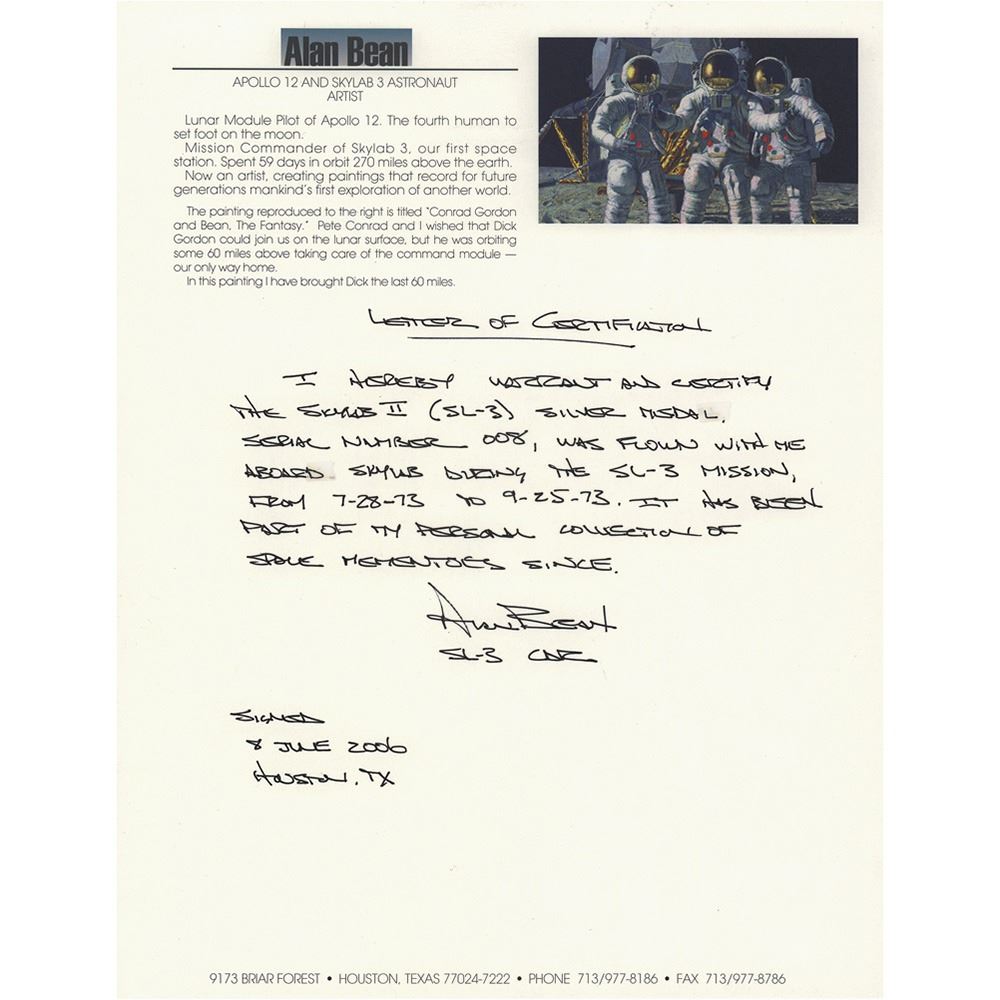 Alan Bean
APOLLO 12 AND SKYLAB 3 ASTRONAUT
ARTIST
Lunar Module Pilot of Apollo 12. The fourth human to
set foot on the moon.
Mission Commander of Skylab 3, our first space
station. Spent 59 days in orbit 270 miles above the earth.
Now an artist, creating paintings that record for future
generations mankind's first exploration of another world.
The painting reproduced to the right is titled "Conrad Gordon
and Bean, The Fantasy." Pete Conrad and I wished that Dick
Gordon could join us on the lunar surface, but he was orbiting
some 60 miles above taking care of the command module —
our only way home.
In this painting I have brought Dick the last 60 miles.
LETTER OF CERTIFICATION
I HEREBY WARRANT AND CERTIFY
THE SKYLAB II (SL-3) SILVER MEDAL,
SERIAL NUMBER 008, WAS FLOWN WITH ME
ABOARD SKYLAB DURING THE SL-3 MISSION,
FROM 7-28-73 TO 9-25-73. IT HAS BEEN
PART OF MY PERSONAL COLLECTION OF
SPACE MEMENTOES SINCE.
ALAN BEAN
SL-3 CDR
SIGNED
8 JUNE 2006
HOUSTON, TX
9173 BRIAR FOREST • HOUSTON, TEXAS 77024-7222 • PHONE 713/977-8186 • FAX 713/977-8786